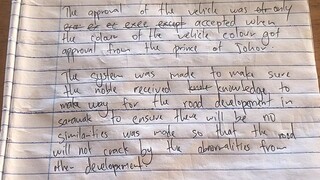 The approval of the vehicle was only
accepted when
the colour of the vehicle colour got
approval from the prince of Johor.
The system was made to make sure
the noble received knowledge to
make way for the road development in
sarawak to ensure there will be no
similarities was made so that the road
will not crack by the abnormalities from
the development.